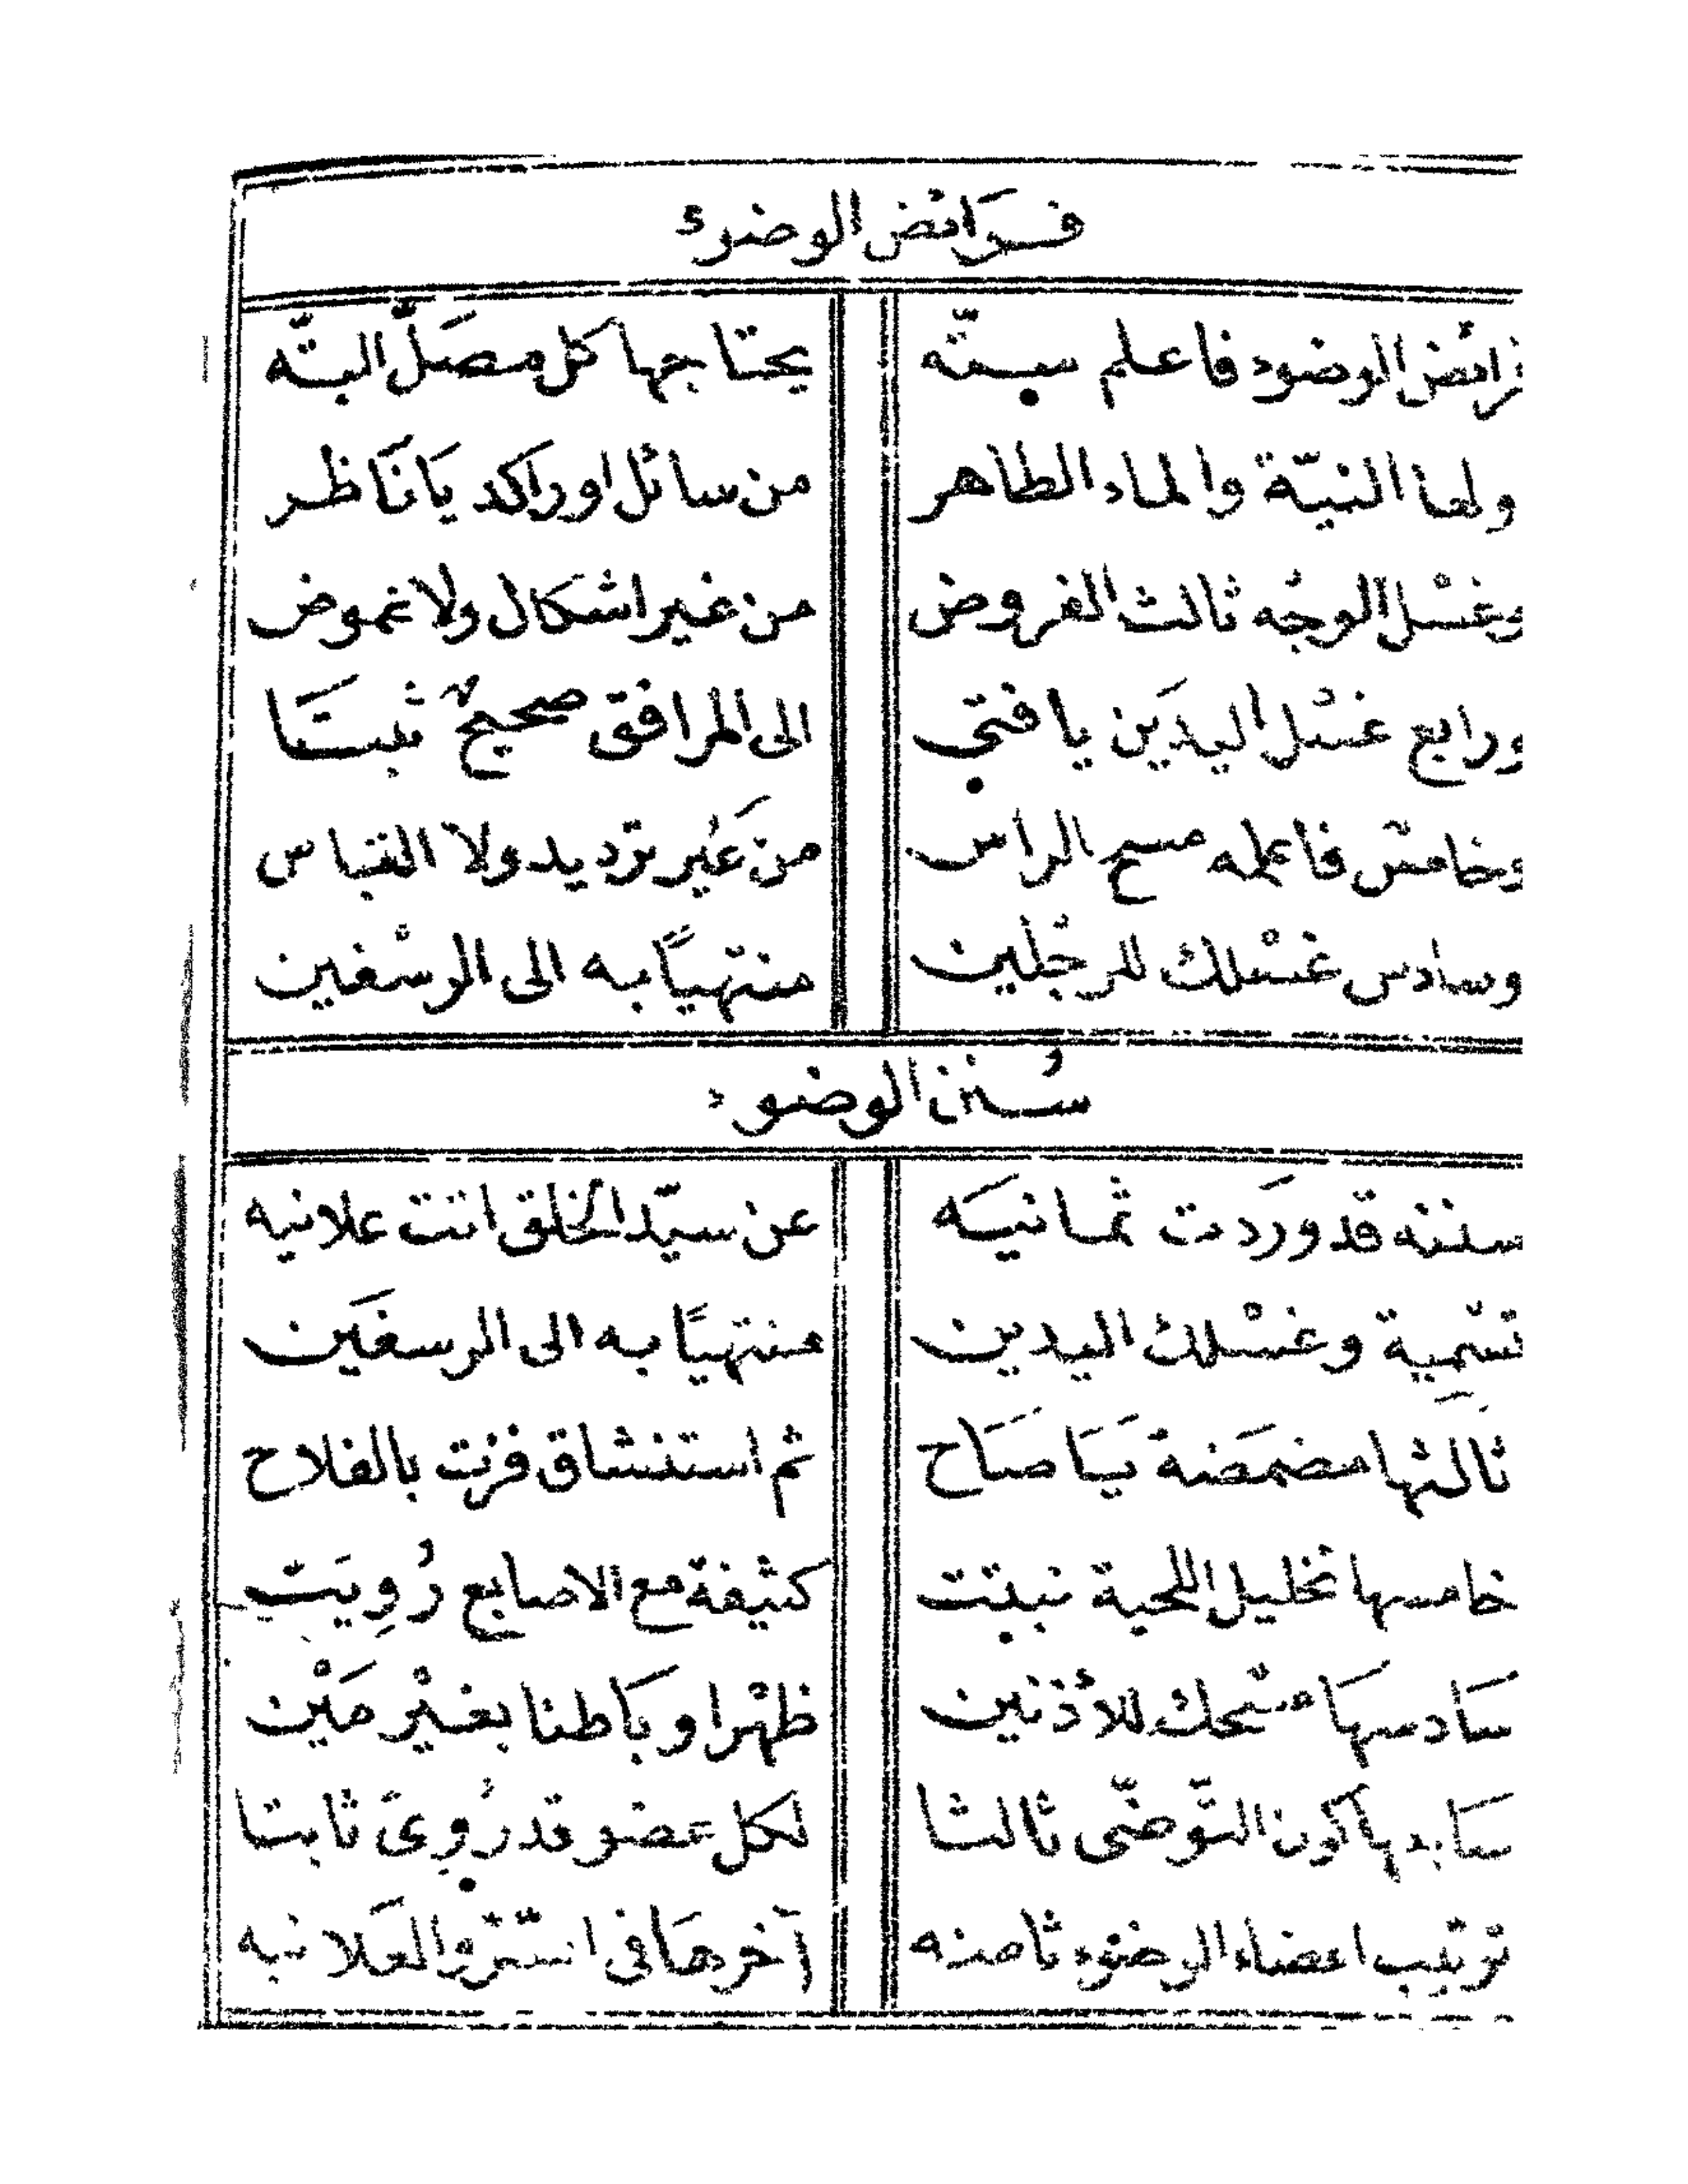 فرائض الوضوء
فرائض الوضوء فاعلم ستّه يحتاجها كل مصَلّ البتّه
ولها النيّة والماء الطاهر من سائل او راكد يَا نَاظر
وغسْل الوجْه ثالث الفروض من غير اشكال ولا غموض
ورابع غسْل اليدَين يا فتى الى المرافق صحيحٌ ثبتَا
وخامسٌ فاعلمه مسح الراس من غَير ترديد ولا التباس
وسادس غسْلك للرجْلين منتهيًا به الى الرسْغين
سُنن الوضوء
سننه قد ورَدت ثمانيَه عن سيّد الخلق اتت علانيه
تسْمية وغسْلك اليدين منتهيًا به الى الرسغَين
ثَالثها مضمَضة يَا صَاح ثم استنشاق فزْت بالفلاح
خامسها تخليل اللحية نبتت كثيفة مع الاصابع رُوِيَت
سَادسهَا مسْحك للأذنين ظهْرا وبَاطنا بغيْر مَيْن
سَابعها كون التّوضّى ثالثا لكل عضو قد رُوِىَ ثابتا
ترتيب اعضاء الوضوء ثامنه آخرهَا فى السّرّ والعَلانيه